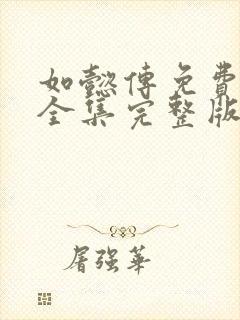 如懿傳免費
全集完整版
屠强華